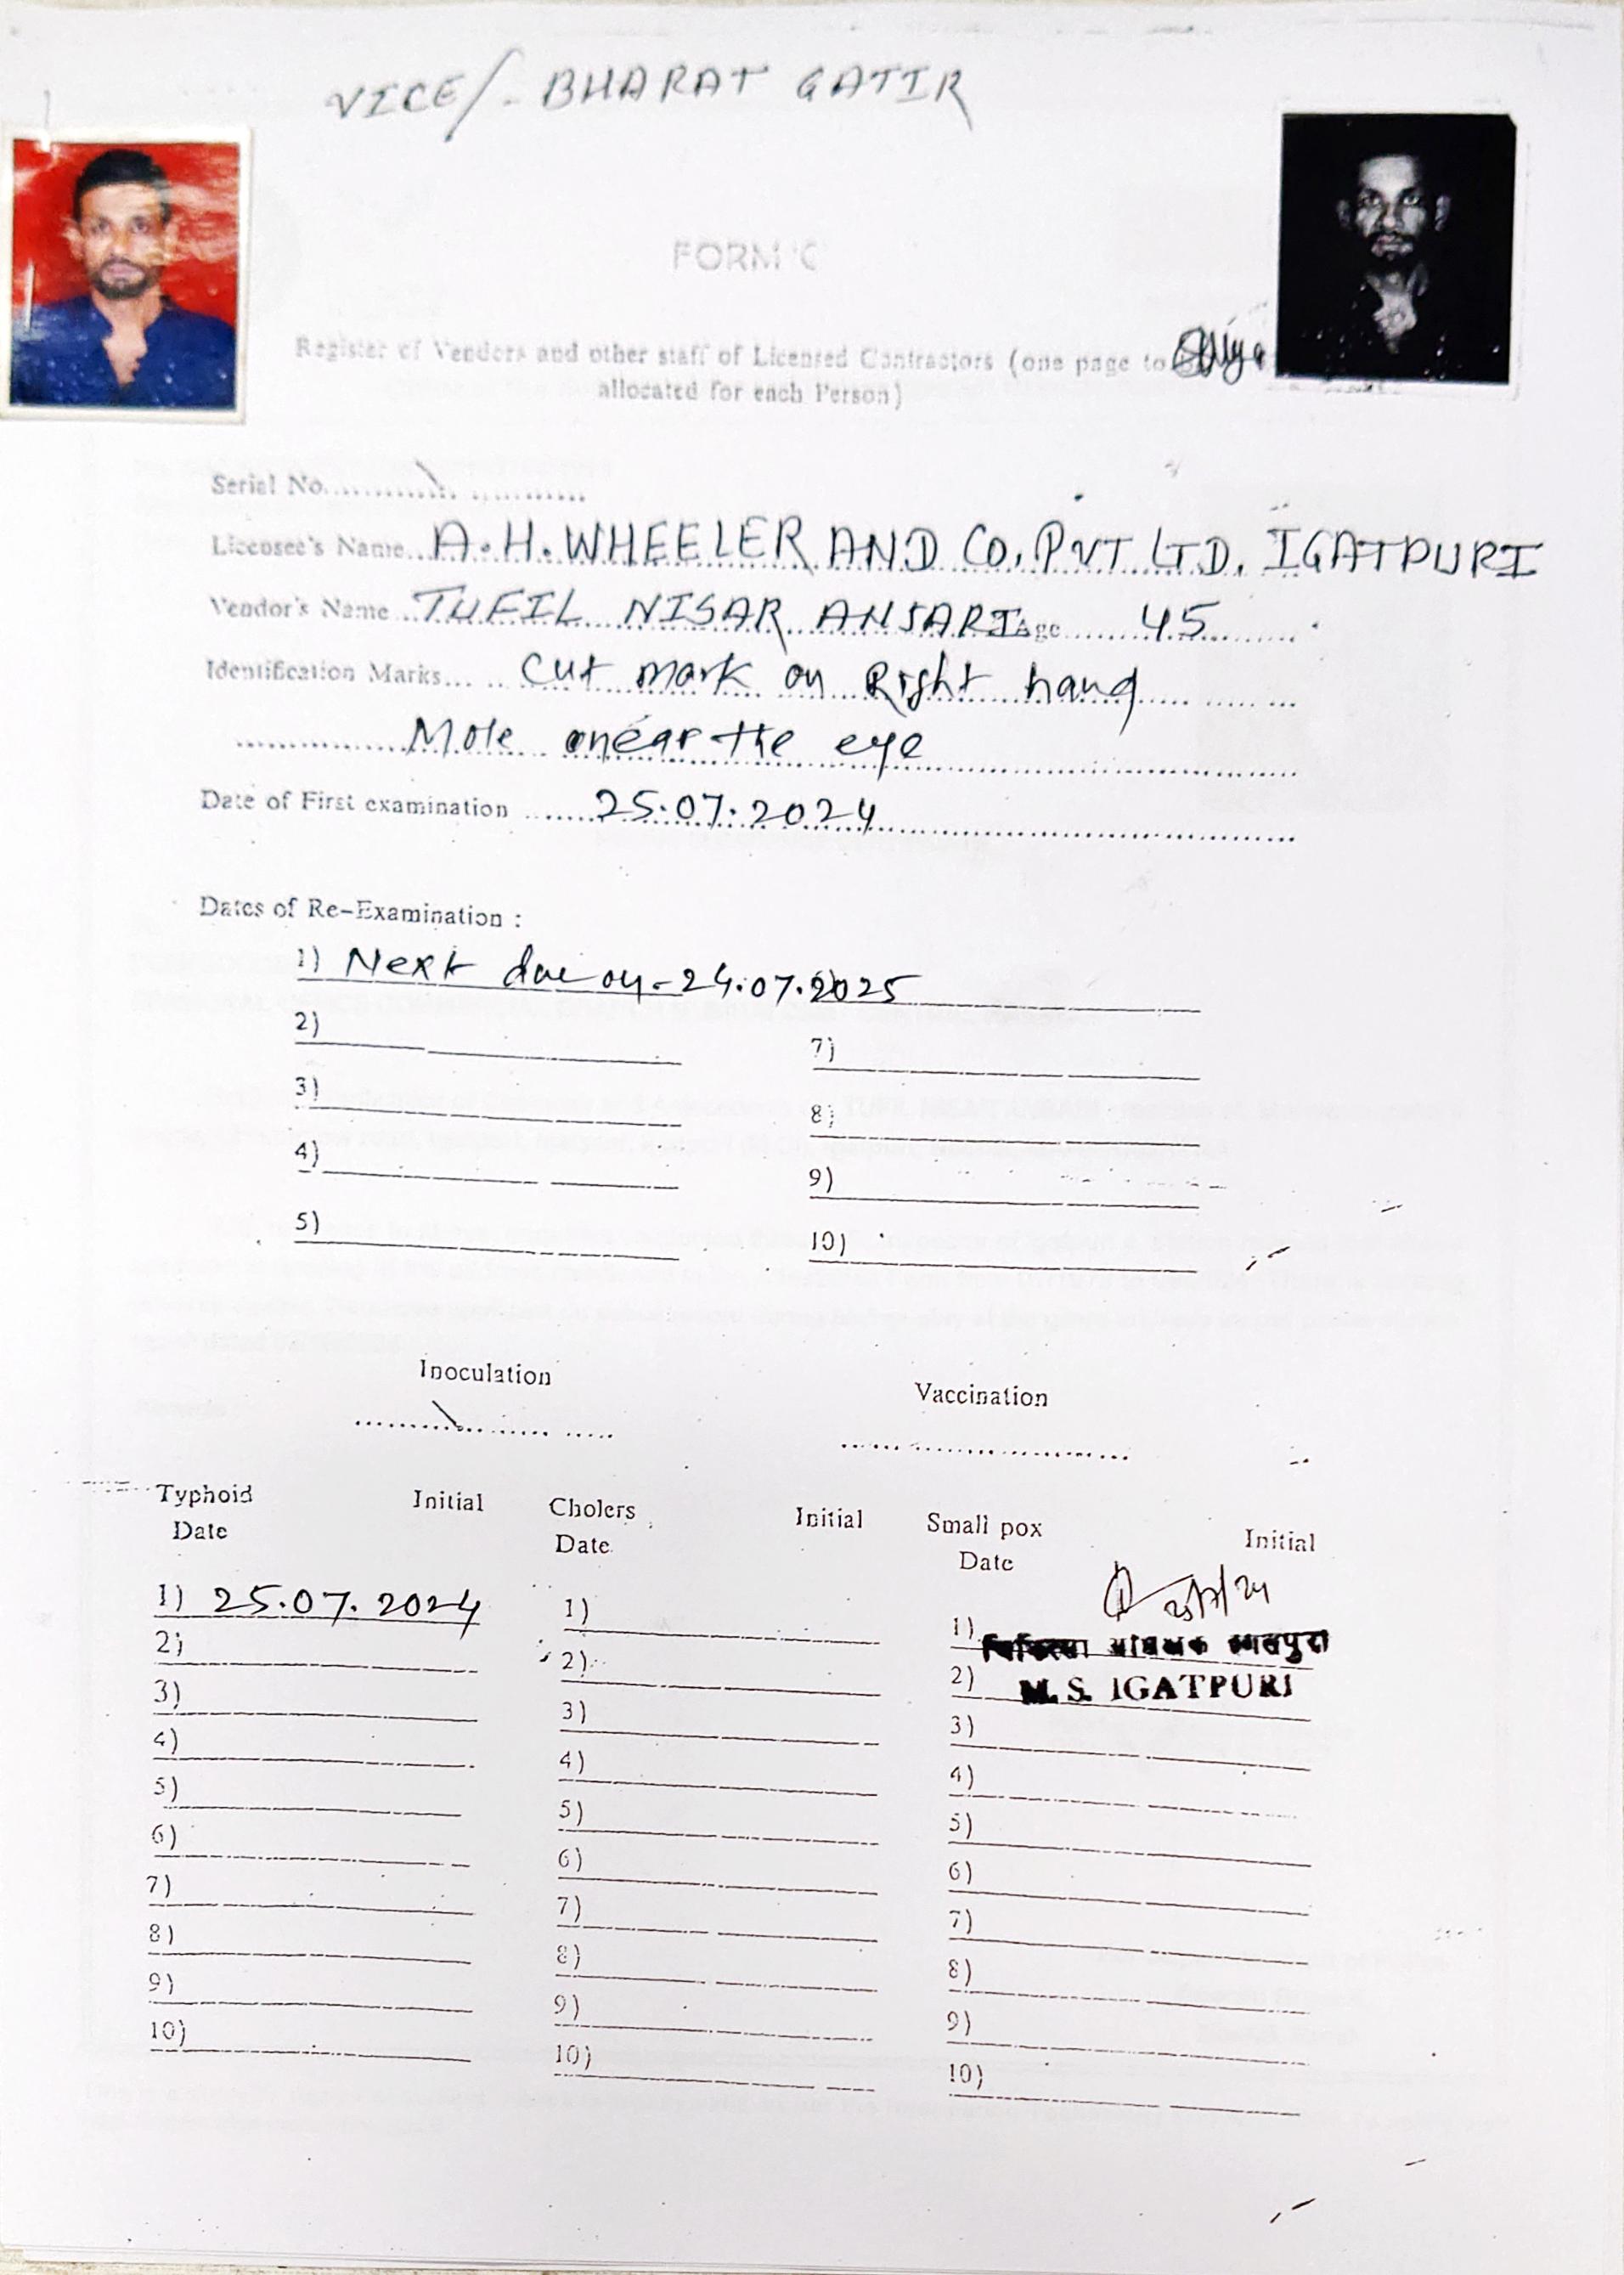 VICE/- BHARAT GATIR
FORM 'C
Register of Vendors and other staff of Licensed Contractors (one page to
allocated for each Person)
Serial No.
Licensee's Name A.H. WHEELER AND CO. PVT LTD. IGATPURI
Vendor's Name TUFIL NISAR ANSARI Age 45
Identification Marks Cut mark on Right hand
Mole near the eye
Date of First examination 25.07.2024
Dates of Re-Examination :
1) Next due on - 24.07.2025
2)
7)
3)
8)
4)
9)
5)
10)
Inoculation
Vaccination
Typhoid Initial Cholers Initial Small pox Initial
Date Date Date
1) 25.07.2024 1) 1)
2) 2) 2) M.S. IGATPURI
3) 3) 3)
4) 4) 4)
5) 5) 5)
6) 6) 6)
7) 7) 7)
8) 8) 8)
9) 9) 9)
10) 10) 10)